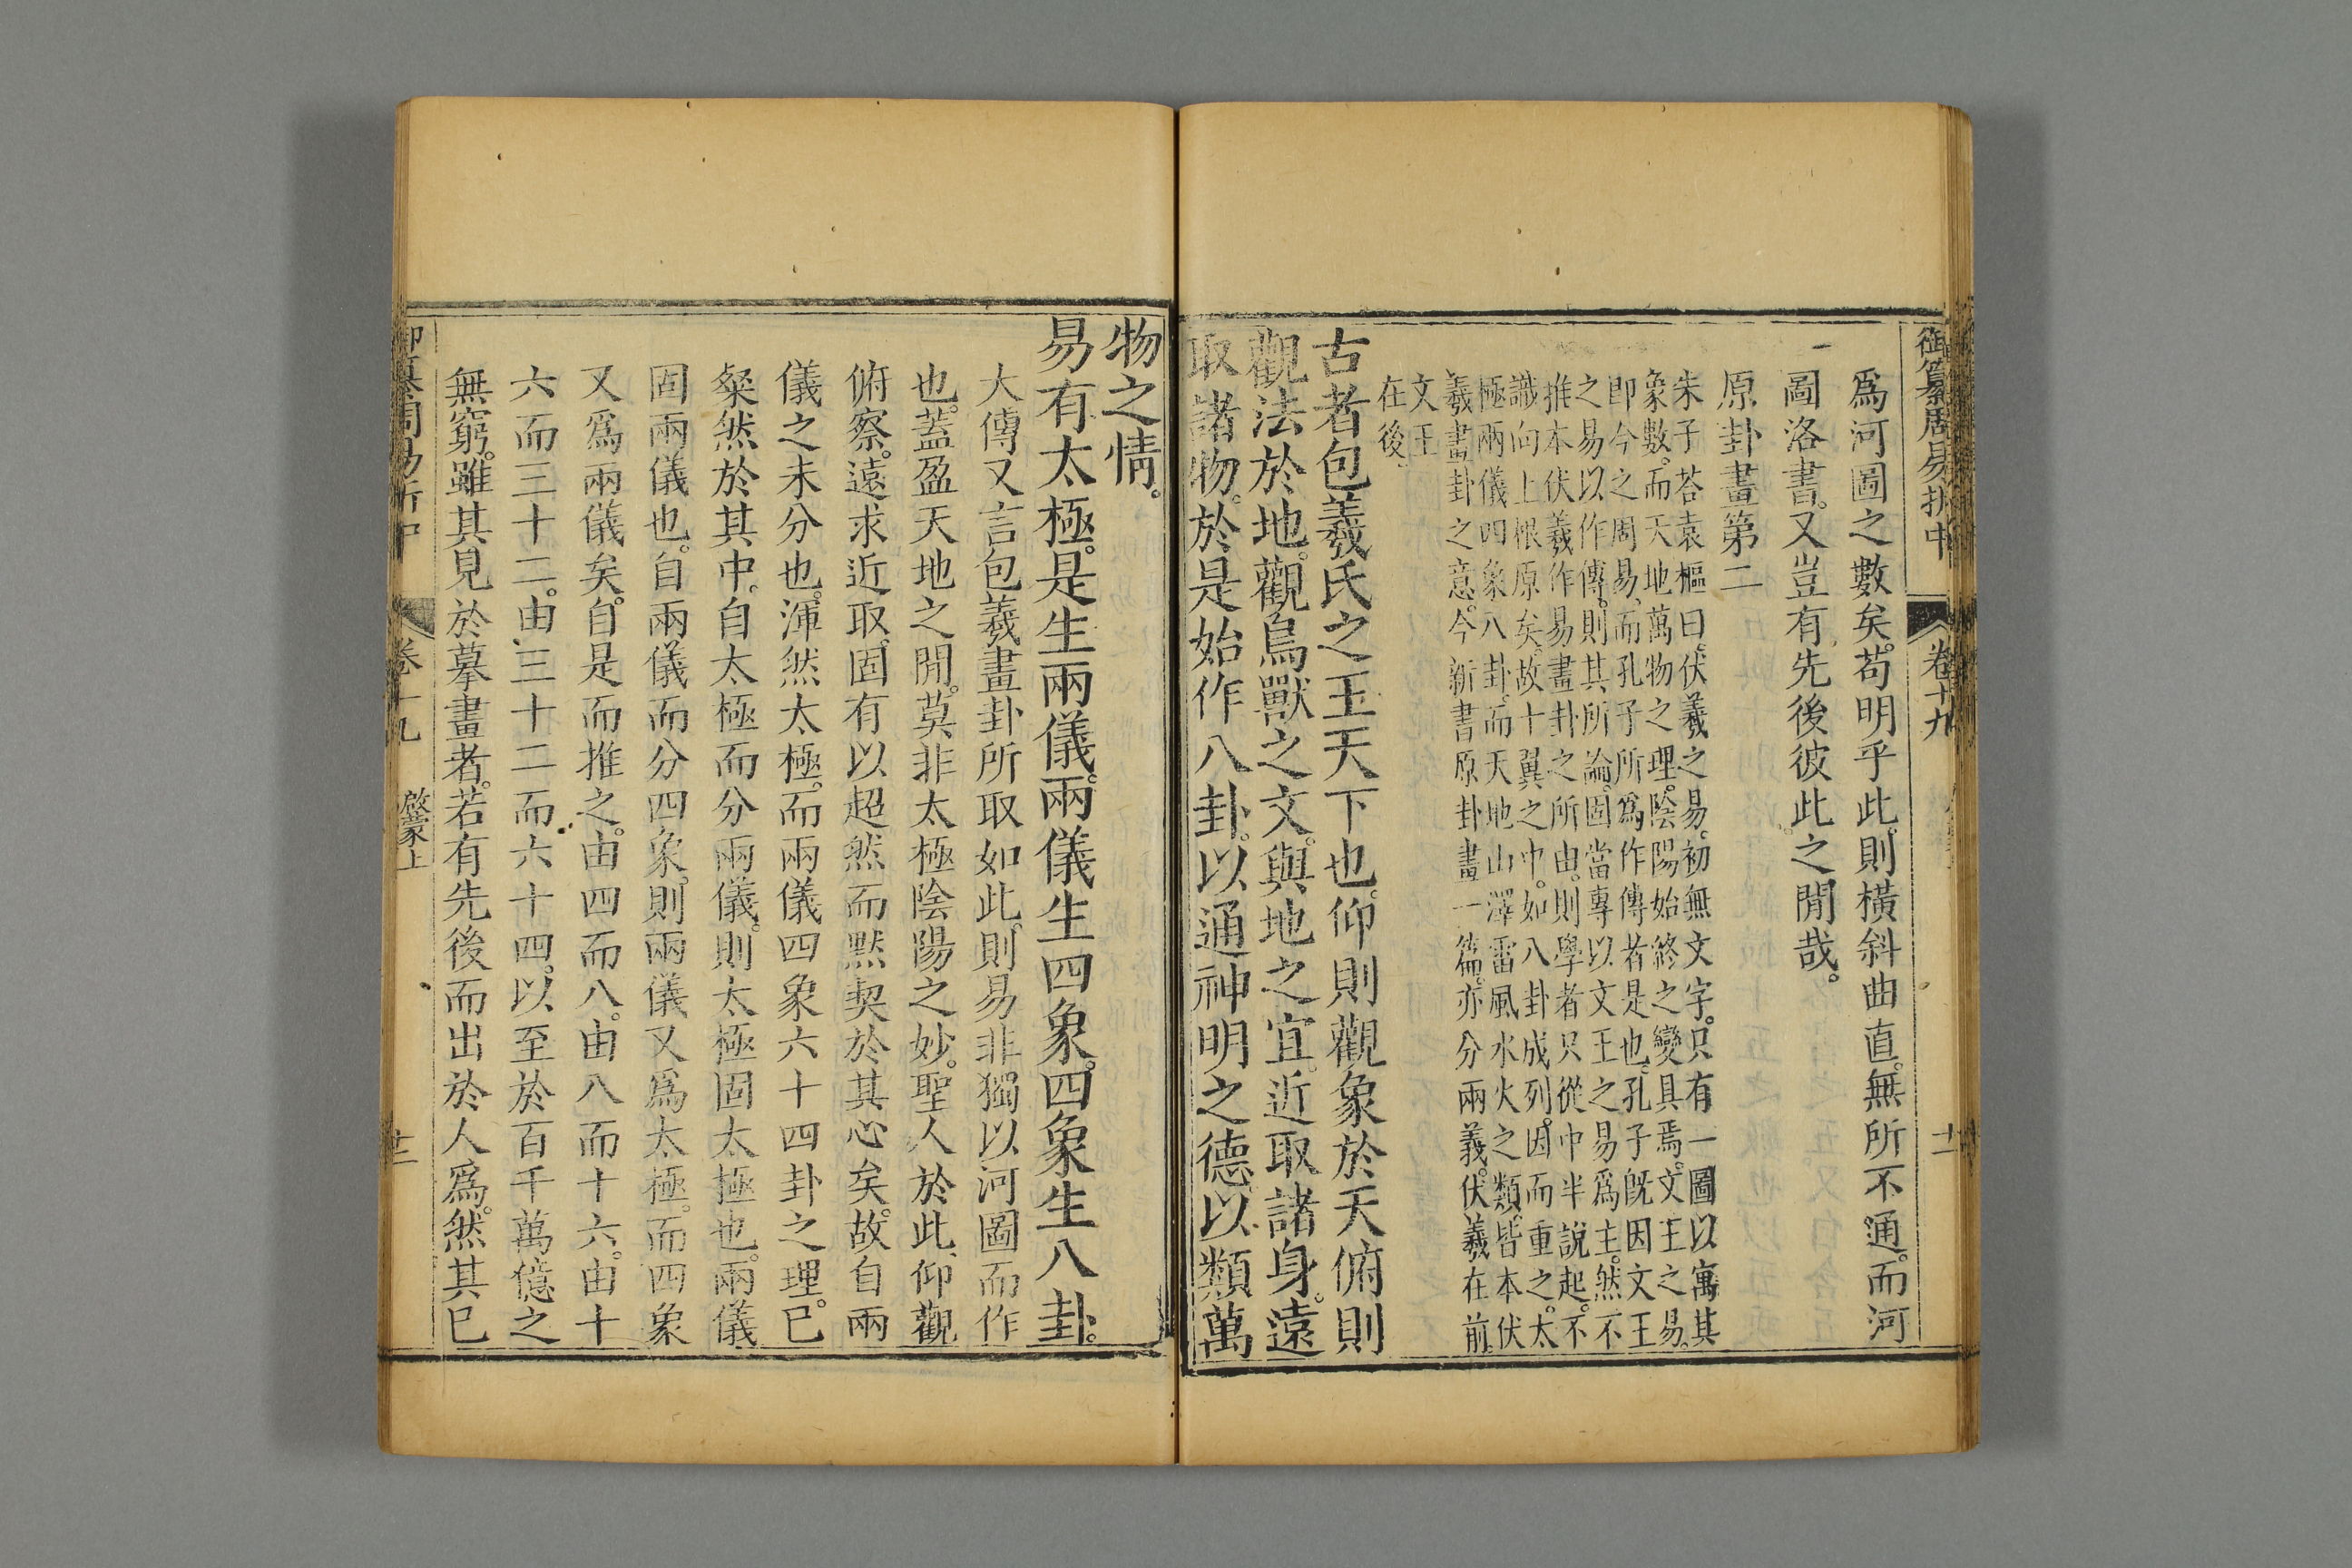 御纂周易折中 卷十九
爲河圖之數矣。苟明乎此。則橫斜曲直。無所不通。而河
圖洛書。又豈有先後彼此之閒哉。
原卦畫第二
朱子荅袁樞曰。伏羲之易。初無文字。只有一圖以寓其
象數。而天地萬物之理。陰陽始終之變具焉。文王之易。
卽今之周易。而孔子所爲作傳者是也。孔子旣因文王
之易以作傳。則其所論。固當專以文王之易爲主。然不
推本伏羲作易畫卦之所由。則學者只從中半說起。不
識向上根原矣。故十翼之中。如八卦成列。因而重之。太
極兩儀四象八卦。而天地山澤雷風水火之類。皆本伏
羲畫卦之意。今新書原卦畫一篇。亦分兩義。伏羲在前。
文王
在後。
古者包羲氏之王天下也。仰則觀象於天。俯則
觀法於地。觀鳥獸之文。與地之宜。近取諸身。遠
取諸物。於是始作八卦。以通神明之德。以類萬
物之情。
易有太極。是生兩儀。兩儀生四象。四象生八卦。
大傳又言包羲畫卦所取如此。則易非獨以河圖而作
也。蓋盈天地之閒。莫非太極陰陽之妙。聖人於此。仰觀
俯察。遠求近取。固有以超然而默契於其心矣。故自兩
儀之未分也。渾然太極。而兩儀四象六十四卦之理。已
粲然於其中。自太極而分兩儀。則太極固太極也。兩儀
固兩儀也。自兩儀而分四象。則兩儀又爲太極。而四象
又爲兩儀矣。自是而推之。由四而八。由八而十六。由十
六而三十二。由三十二而六十四。以至於百千萬億之
無窮。雖其見於摹畫者。若有先後而出於人爲。然其已
御纂周易折中 卷十九 啟蒙上